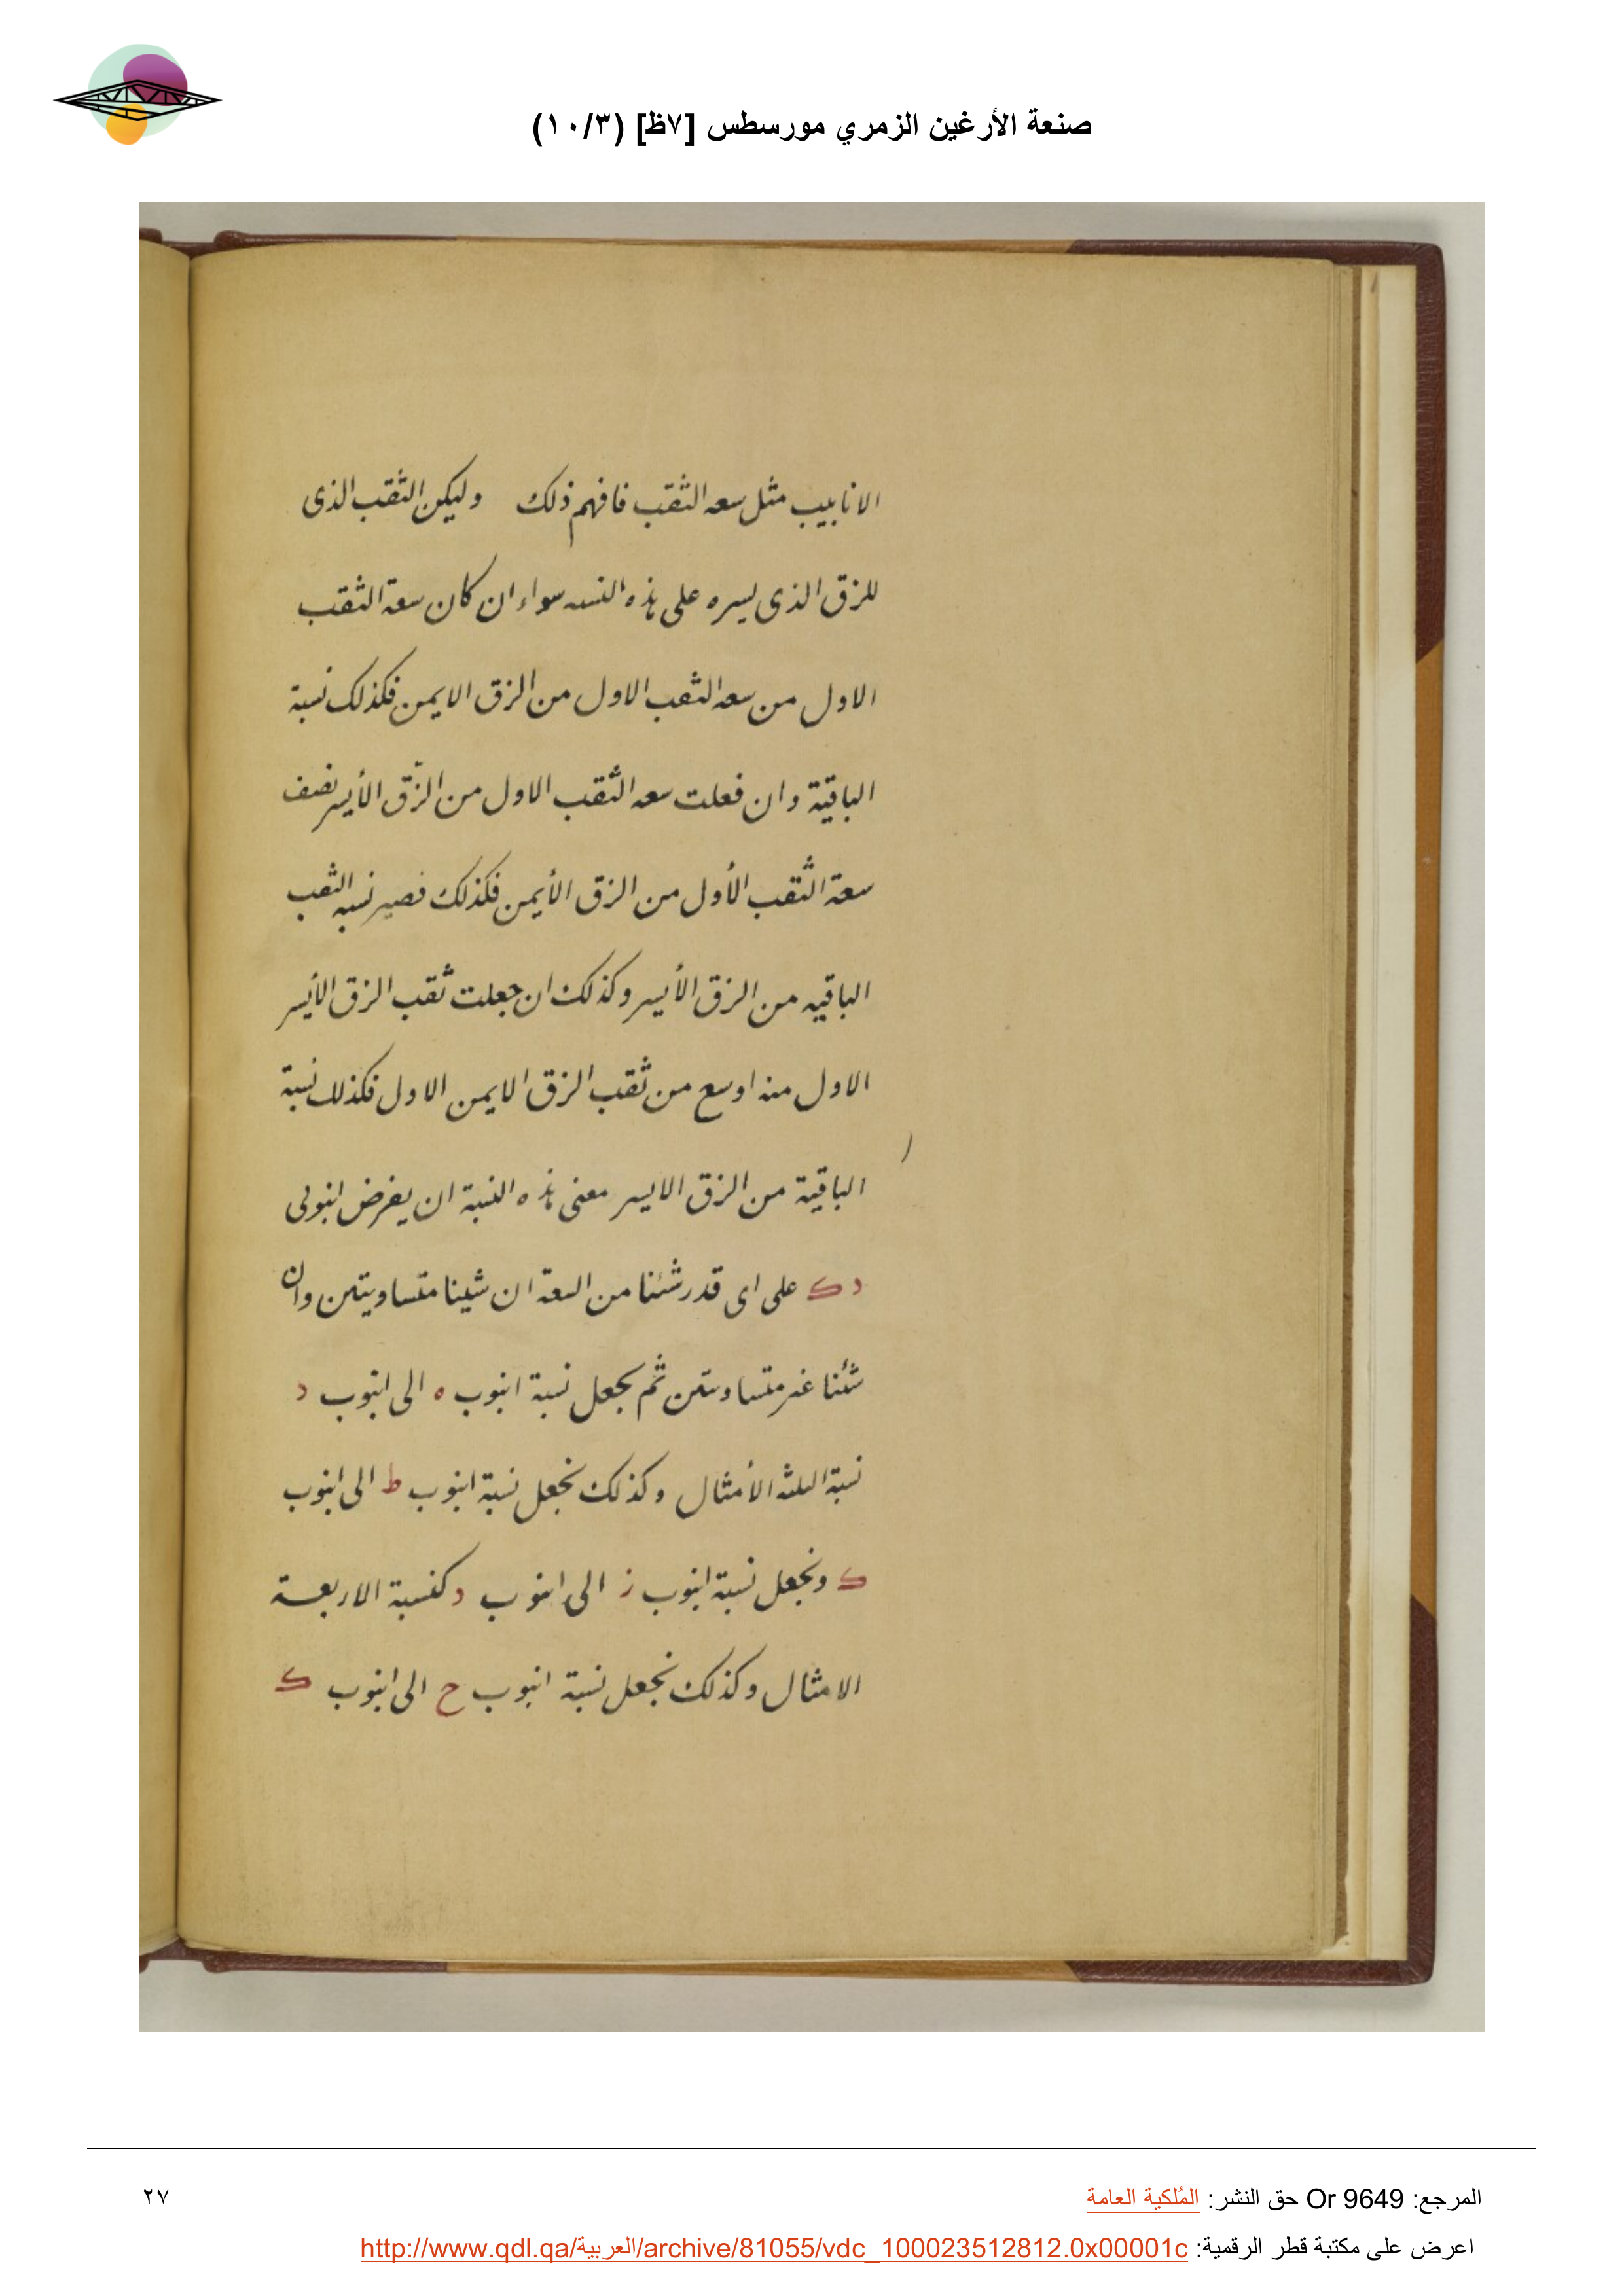 صنعة الأرغين الزمري مورسطس [٧ظ] (١٠/٣)
الانابيب مثل سعه الثقب فافهم ذلك وليكن الثقب الذى
للزق الذى يسره على هذه النسبه سواء ان كان سعة الثقب
الاول من سعه الثقب الاول من الزق الايمن فكذلك نسبة
الباقية وان فعلت سعه الثقب الاول من الزّق الأيسر نصف
سعة الثقب الأول من الزق الأيمن فكذلك فصير نسبه الثقب
الباقيه من الزق الأيسر وكذلك ان جعلت ثقب الزق الأيسر
الاول منه اوسع من ثقب الزق الايمن الاول فكذلك نسبة
الباقية من الزق الايسر معنى هذه النسبة ان يفرض انبوبى
د ک على اى قدر شئنا من السعة ان شينا متساويتين وان
شئنا غير متساويتين ثم يجعل نسبة انبوب ه الى انبوب د
نسبة الثلثه الأمثال وكذلك نجعل نسبة انبوب ط الى انبوب
ک ونجعل نسبة انبوب ز الى انبوب د كنسبة الاربعة
الامثال وكذلك نجعل نسبة انبوب ح الى انبوب ک
المرجع: Or 9649 حق النشر: المُلكية العامة
٢٧
اعرض على مكتبة قطر الرقمية: http://www.qdl.qa/العربية/archive/81055/vdc_100023512812.0x00001c